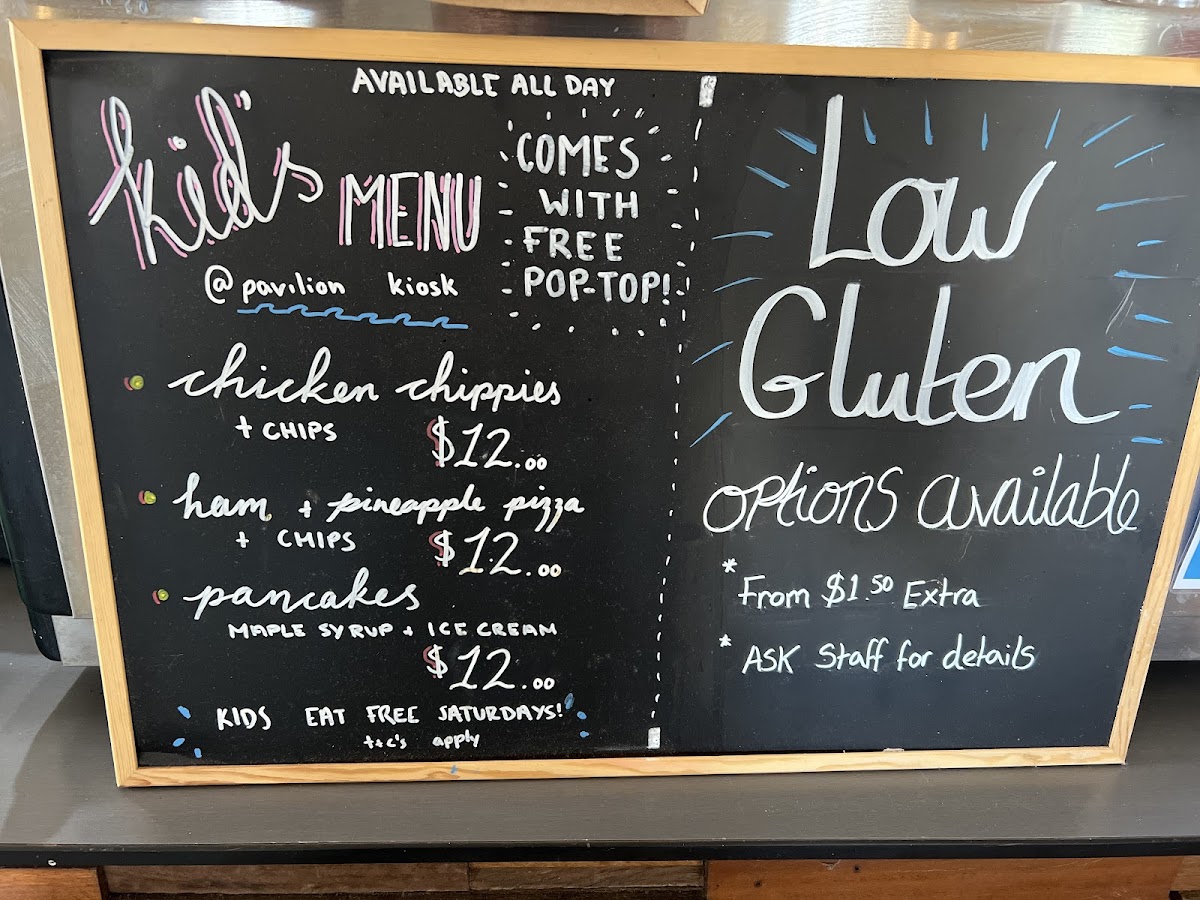 AVAILABLE ALL DAY
Kid's MENU
@pavilion kiosk
COMES
WITH
FREE
POP-TOP!
chicken chippies
+ CHIPS
$12.00
ham + pineapple pizza
+ CHIPS
$12.00
pancakes
MAPLE SYRUP + ICE CREAM
$12.00
KIDS EAT FREE SATURDAYS!
t+c's apply
Low
Gluten
options available
* From $1.50 Extra
* ASK Staff for details